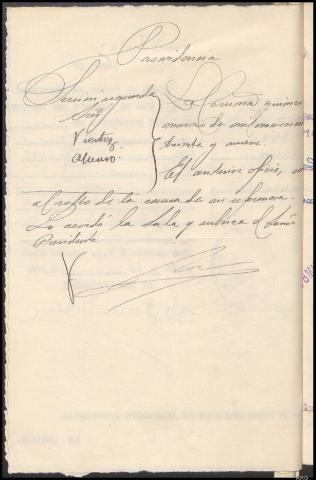 Providencia
Sección segunda
Srs
La Coruña quince
marzo de mil novecien
treinta y nueve.
El anterior oficio, u
al rollo de la causa de su referencia.
Lo acordó la Sala y rubrica el Señor
Presidente